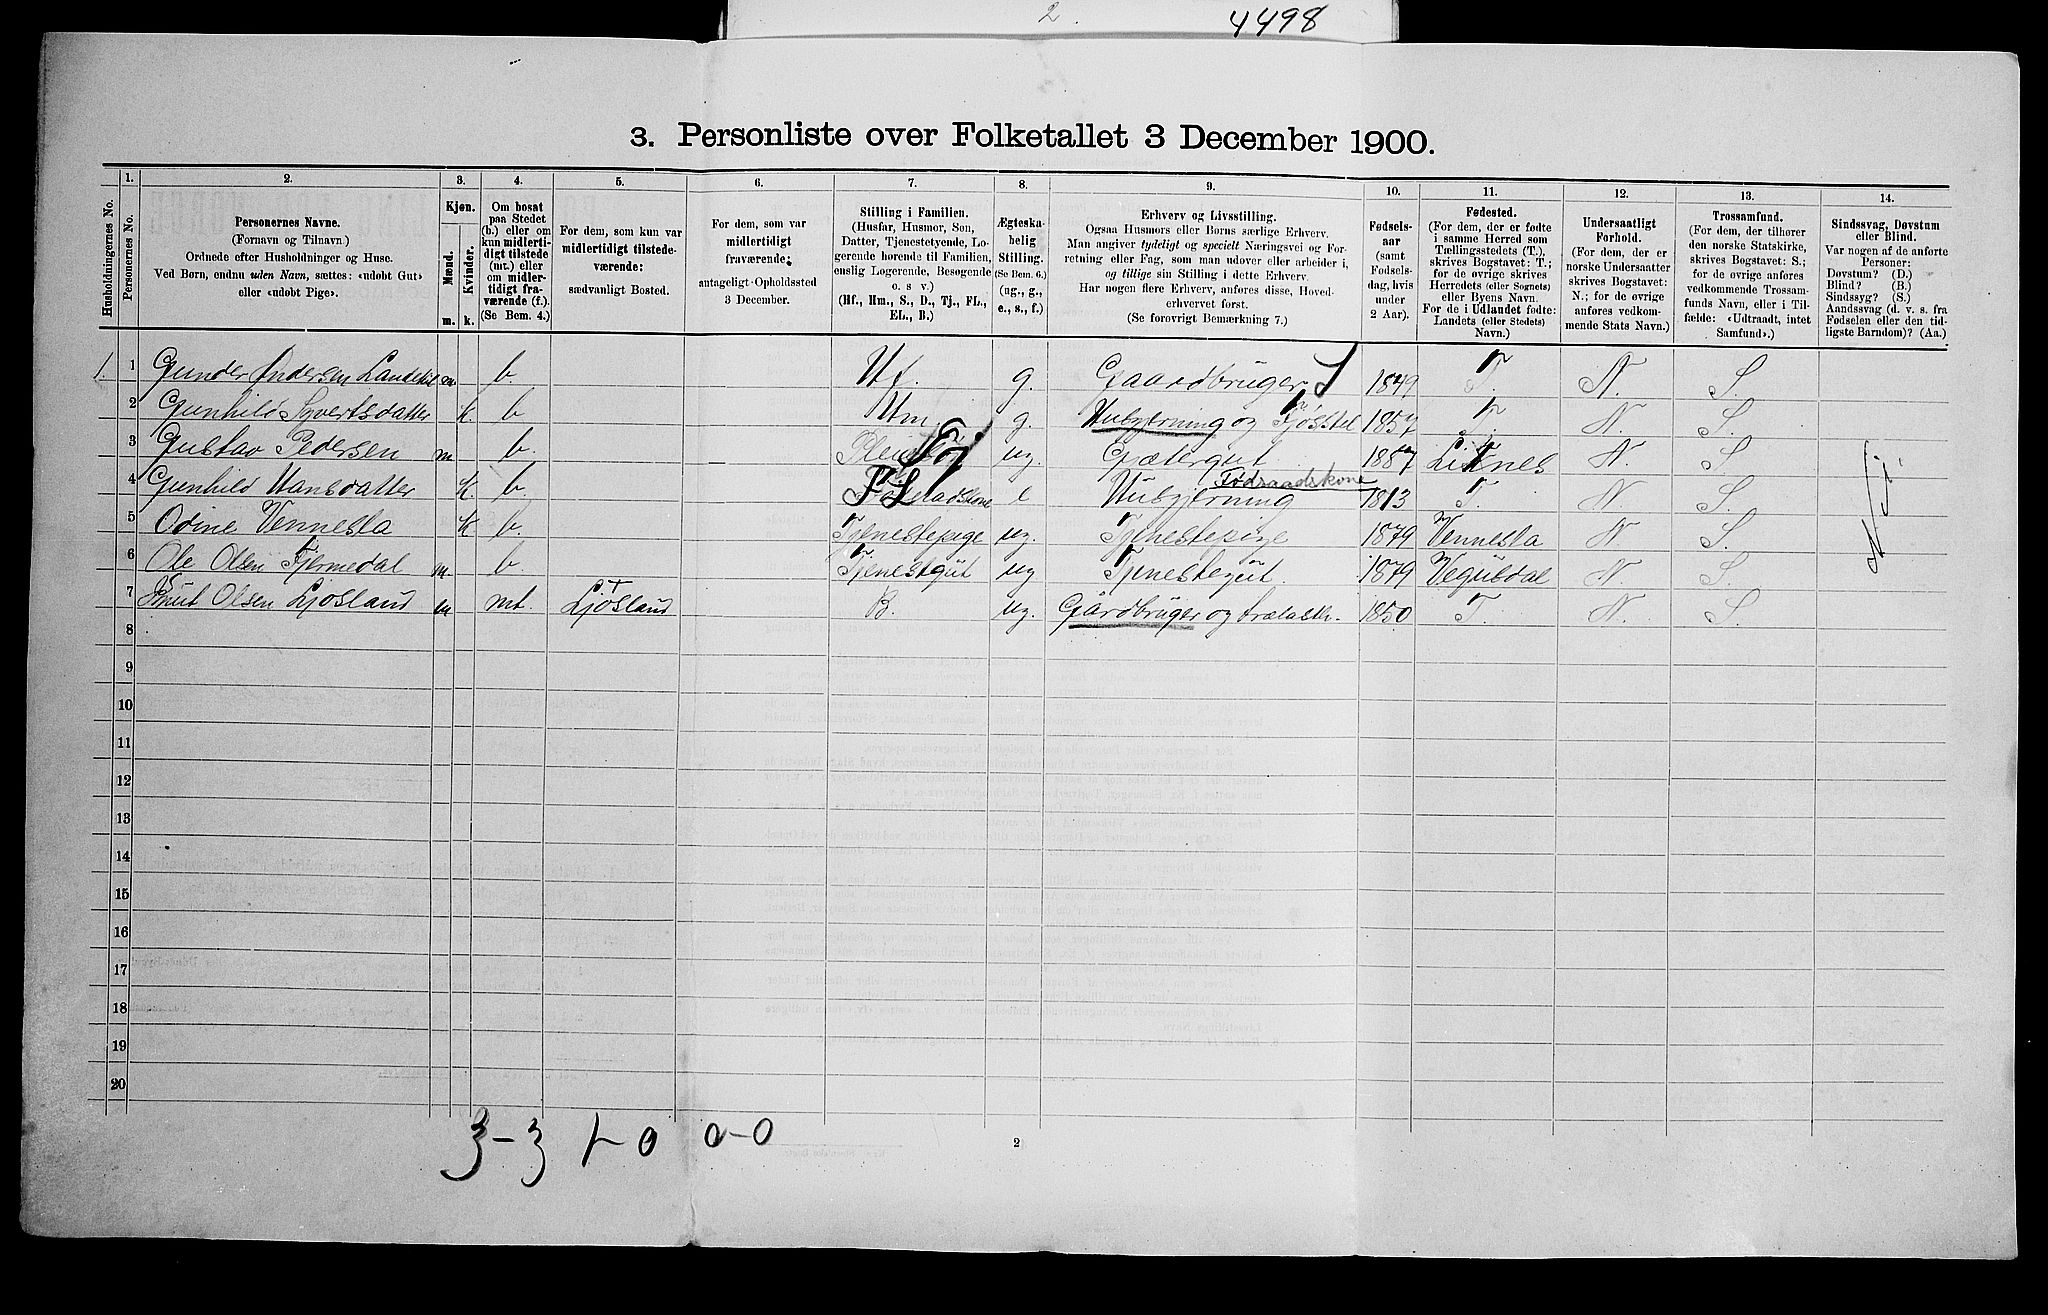 2. 4498
3. Personliste over Folketallet 3 December 1900.
1. 2. 3. 4. 5. 6. 7. 8. 9. 10. 11. 12. 13. 14.
Husholdningernes No.
Personernes No.
Personernes Navne.
(Fornavn og Tilnavn.)
Ordnede efter Husholdninger og Huse.
Ved Børn, endnu uden Navn, sættes: «udøbt Gut»
eller «udøbt Pige».
Kjøn.
Mænd.
m.
Kvinder.
k.
Om bosat
paa Stedet
(b.) eller om
kun midlerti-
digt tilstede
(mt.) eller
om midler-
tidigt fra-
værende (f.).
(Se Bem. 4.)
For dem, som kun var
midlertidigt tilstede-
værende:
sædvanligt Bosted.
For dem, som var
midlertidigt
fraværende:
antageligt Opholdssted
3 December.
Stilling i Familien.
(Husfar, Husmor, Søn,
Datter, Tjenestetyende, Lo-
gerende hørende til Familien,
enslig Logerende, Besøgende
o. s. v.)
(Hf., Hm., S., D., Tj., FL.,
EL., B.)
Ægteska-
belig
Stilling.
(Se Bem. 6.)
(ug., g.,
e., s., f.)
Erhverv og Livsstilling.
Ogsaa Husmors eller Børns særlige Erhverv.
Man angiver tydeligt og specielt Næringsvei og For-
retning eller Fag, som man udøver eller arbeider i,
og tillige sin Stilling i dette Erhverv.
Har nogen flere Erhverv, anføres disse, Hoved-
erhvervet først.
(Se forøvrigt Bemærkning 7.)
Fødsels-
aar
(samt
Fødsels-
dag, hvis
under
2 Aar).
Fødested.
(For dem, der er fødte
i samme Herred som
Tællingsstedets (T.),
skrives Bogstavet: T.;
for de øvrige skrives
Herredets (eller Sognets)
eller Byens Navn.
For de i Udlandet fødte:
Landets (eller Stedets)
Navn.)
Undersaatligt
Forhold.
(For dem, der er
norske Undersaatter
skrives Bogstavet:
N.; for de øvrige
anføres vedkom-
mende Stats Navn.)
Trossamfund.
(For dem, der tilhører
den norske Statskirke,
skrives Bogstavet: S.;
for de øvrige anføres
vedkommende Trossam-
funds Navn, eller i Til-
fælde: «Udtraadt, intet
Samfund».)
Sindssvag, Døvstum
eller Blind.
Var nogen af de anførte
Personer:
Døvstum? (D.)
Blind? (B.)
Sindssyg? (S.)
Aandssvag (d. v. s. fra
Fødselen eller den tid-
ligste Barndom)? (Aa.)
1. 1 Gunder Andersen m b. Hf. g. Gaardbruger S 1849 T. N. S.
2 Gunhild Syvertsdatter k b Hm g. Husgjerning og Fjøsstel 1857 T. N. S.
3 Gustav Pedersen m b. Tj ug. Gjætergut 1887 N. S.
4 Gunhild Hansdatter k b. FL e Husgjerning Føderaadskone 1813 T. N. S.
5 Odine Vennesla k b. Tjenestepige ug. Tjenestepige 1879 Vennesla N. S.
6 Ole Olsen Tjermedal m b. Tjenestgut ug Tjenestegut 1879 Vegusdal N. S.
7 Knut Olsen Ljosland m mt. Ljosland B. ug. Gårdbruger og 1850 T. N. S.
8
9
10
11
12
13
14
15
16
17
18
19
20
3-3 1-0 0-0
2